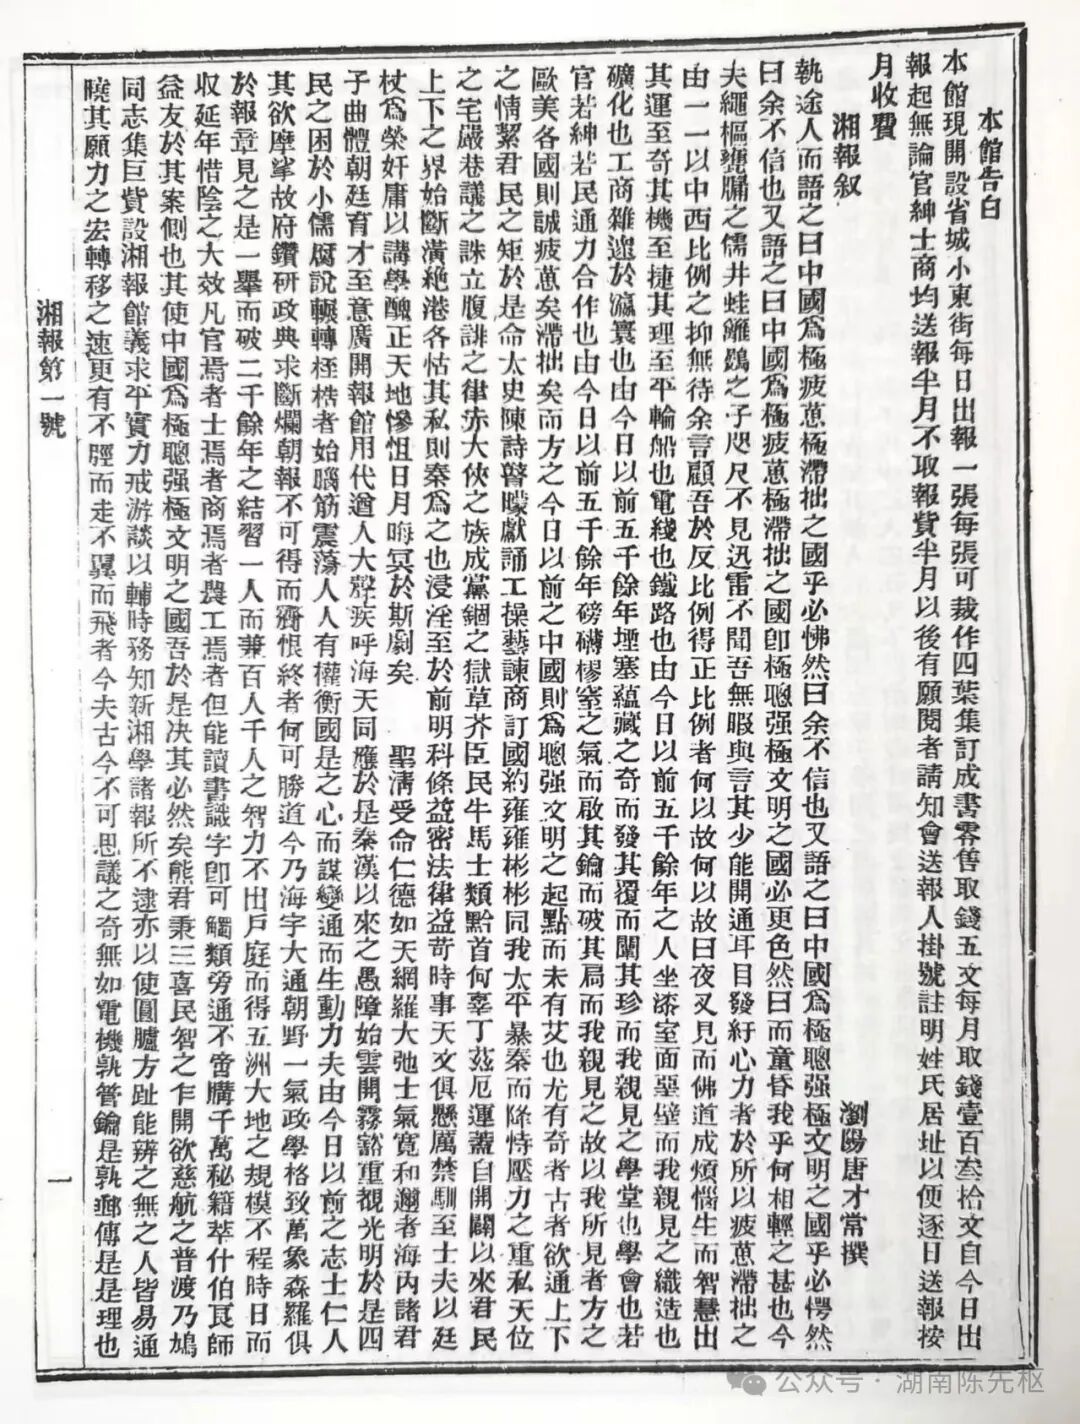 本館告白
本館現開設省城小東街每日出報一張每張可裁作四葉集訂成書零售取錢五文每月取錢壹百叁拾文自今日出
報起無論官紳士商均送報半月不取報費半月以後有願閱者請知會送報人掛號註明姓氏居址以便逐日送報按
月收費
湘報叙
瀏陽唐才常撰
執途人而語之曰中國爲極疲薾極滯拙之國乎必怫然曰余不信也又語之曰中國爲極聰强極文明之國乎必愕然
曰余不信也又語之曰中國爲極疲薾極滯拙之國卽極聰强極文明之國必更色然曰而童昏我乎何相輕之甚也今
夫繩樞甕牖之儒井蛙籬鷃之子咫尺不見迅雷不聞吾無暇與言其少能開通耳目發紓心力者於所以疲薾滯拙之
由一一以中西比例之抑無待余言顧吾於反比例得正比例者何以故何以故曰夜叉見而佛道成煩惱生而智慧出
其運至奇其機至捷其理至平輪船也電綫也鐵路也由今日以前五千餘年之人坐漆室面堊壁而我親見之織造也
礦化也工商雜遝於瀛寰也由今日以前五千餘年堙塞蘊藏之奇而發其覆而闡其珍而我親見之學堂也學會也若
官若紳若民通力合作也由今日以前五千餘年磅礴樛窒之氣而啟其鑰而破其扃而我親見之故以我所見者方之
歐美各國則誠疲薾矣滯拙矣而方之今日以前之中國則爲聰强文明之起點而未有艾也尤有奇者古者欲通上下
之情絜君民之矩於是命太史陳詩瞽矇獻誦工操藝諫商訂國約雍雍彬彬同我太平暴秦而降恃壓力之重私天位
之宅嚴巷議之誅立腹誹之律赤大俠之族成黨錮之獄草芥臣民牛馬士類黔首何辜丁茲厄運蓋自開闢以來君民
上下之界始斷潢絕港各怙其私則秦爲之也浸淫至於前明科條益密法律益苛時事天文俱懸厲禁馴至士夫以廷
杖爲榮奸庸以講學醜正天地慘怛日月晦冥於斯劇矣　聖淸受命仁德如天網羅大弛士氣寬和邇者海內諸君
子曲體朝廷育才至意廣開報館用代遒人大聲疾呼海天同應於是秦漢以來之愚障始雲開霧豁重覩光明於是四
民之困於小儒腐說輾轉桎梏者始腦筋震蕩人人有權衡國是之心而謀變通而生動力夫由今日以前之志士仁人
其欲摩挲故府鑽研政典求斷爛朝報不可得而齎恨終者何可勝道今乃海字大通朝野一氣政學格致萬象森羅俱
於報章見之是一舉而破二千餘年之結習一人而兼百人千人之智力不出戶庭而得五洲大地之規模不程時日而
収延年惜陰之大效凡官焉者士焉者商焉者農工焉者但能讀書識字卽可觸類旁通不啻購千萬秘籍萃什伯良師
益友於其案側也其使中國爲極聰强極文明之國吾於是决其必然矣熊君秉三喜民智之乍開欲慈航之普渡乃鳩
同志集巨貲設湘報館義求平實力戒游談以輔時務知新湘學諸報所不逮亦以使圓臚方趾能辨之無之人皆易通
曉其願力之宏轉移之速更有不脛而走不翼而飛者今夫古今不可思議之奇無如電機孰管鑰是孰郵傳是是理也
湘報第一號
一
公众号·湖南陈先枢